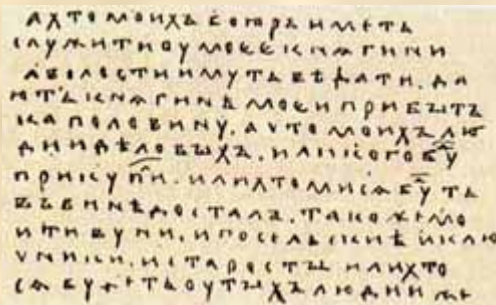 а хто моихъ бояръ иметъ
служити оу моее княгини
а волости имутъ вѣдати. да
ютъ княгинѣ моеи прибытъ
ка половину. а что моихъ лю
дии дѣловыхъ. или кого бу
прикупи. или хто ми ся бу тъ
въ винѣ досталъ. тако же мо
и тивуни. и посельскиѣ и клю
чники. и старосты или хто
ся буде тъ оу тыхъ людии же